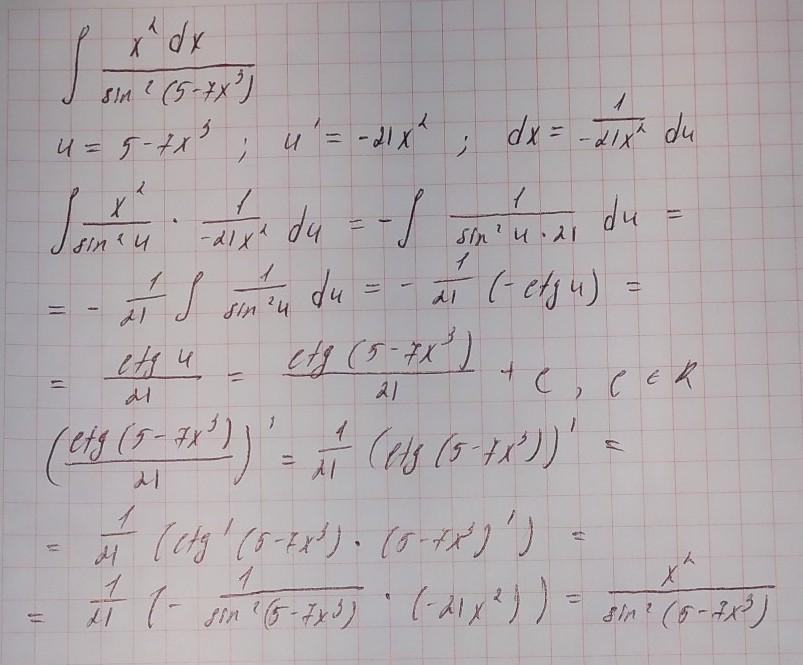 ∫ x² dx / sin² (5-7x³)
u = 5-7x³ ; u' = -21x² ; dx = 1/(-21x²) du
∫ x²/(sin² u) · 1/(-21x²) du = -∫ 1/(sin² u · 21) du =
= - 1/21 ∫ 1/(sin² u) du = - 1/21 (-ctg u) =
= (ctg u)/21 = (ctg (5-7x³))/21 + C , C ∈ R
((ctg (5-7x³))/21)' = 1/21 (ctg (5-7x³))' =
= 1/21 (ctg' (5-7x³) · (5-7x³)') =
= 1/21 (- 1/(sin² (5-7x³)) · (-21x²)) = x²/(sin² (5-7x³))